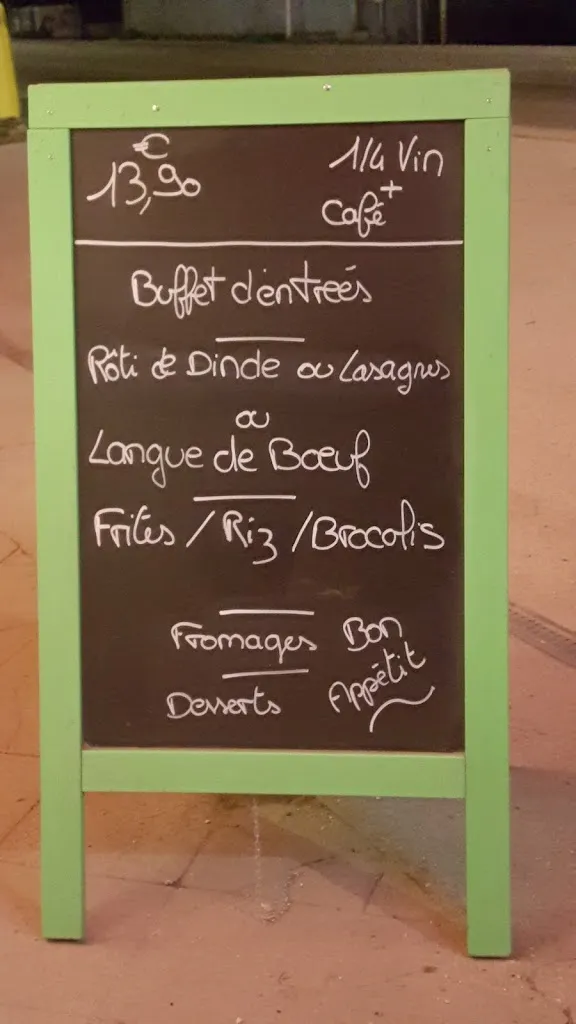 13,90 €
1/4 Vin
+
Café
Buffet d'entreés
Rôti de Dinde ou Lasagnes
ou
Langue de Bœuf
Frites / Riz / Brocolis
Fromages
Desserts
Bon
Appétit